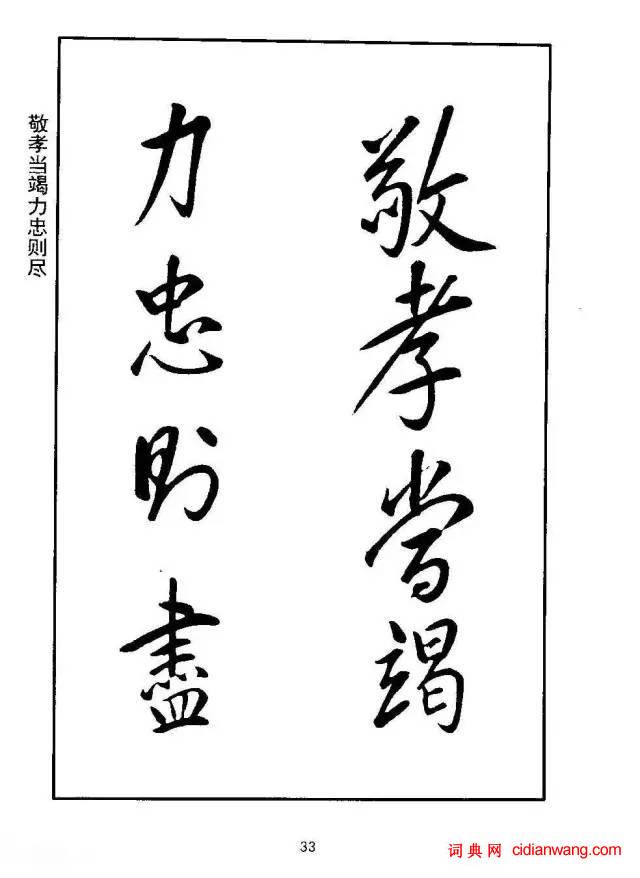 敬孝當竭
力忠則盡
敬孝当竭力忠则尽
33
词典网 cidianwang.com